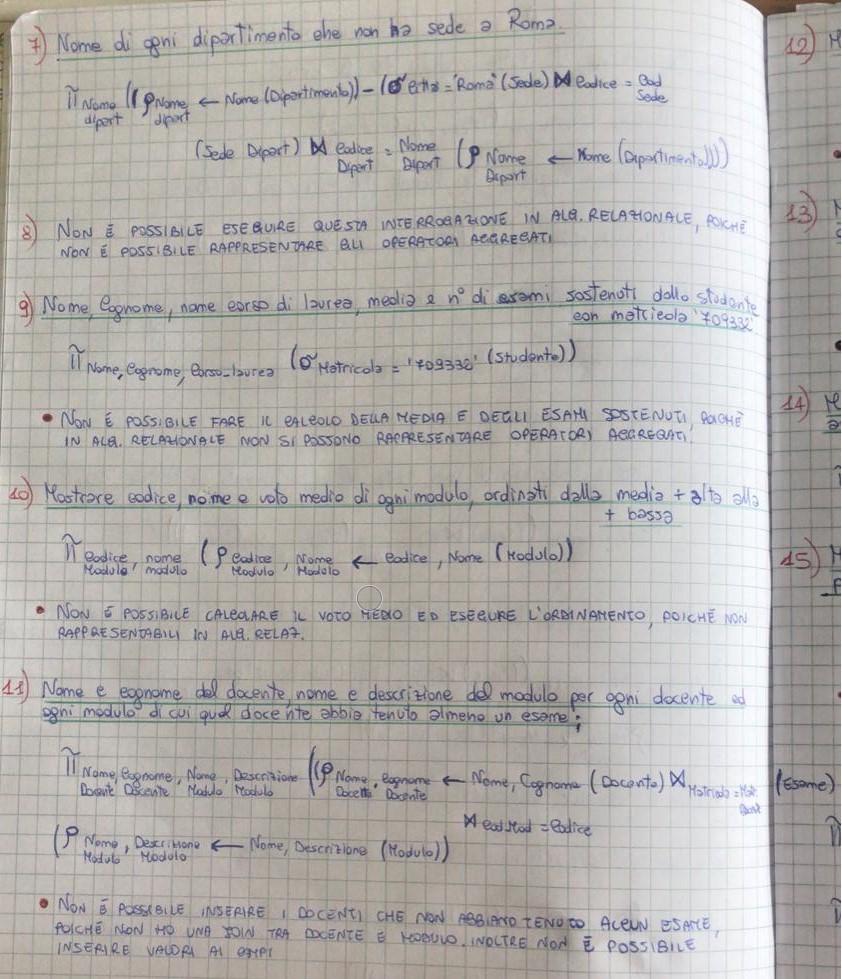 7) Nome di ogni dipartimento che non ha sede a Roma.
π Nome dipart ((ρ Nome dipart ← Nome (Dipartimento)) – (σ città = 'Roma' (Sede) ⋈ codice = cod Sede
(Sede Dipart) ⋈ codice Dipart = Nome Dipart (ρ Nome Dipart ← Nome (Dipartimento))))
8) NON È POSSIBILE ESEGUIRE QUESTA INTERROGAZIONE IN ALG. RELAZIONALE, POICHÉ
NON È POSSIBILE RAPPRESENTARE GLI OPERATORI AGGREGATI
9) Nome, Cognome, nome corso di laurea, media e n° di esami sostenuti dallo studente
con matricola '709332'
π Nome, Cognome, Corso_laurea (σ Matricola = '709332' (Studente))
• NON È POSSIBILE FARE IL CALCOLO DELLA MEDIA E DEGLI ESAMI SOSTENUTI, POICHÉ
IN ALG. RELAZIONALE NON SI POSSONO RAPPRESENTARE OPERATORI AGGREGATI.
10) Mostrare codice, nome e voto medio di ogni modulo, ordinati dalla media + alta alla
+ bassa
π codice Modulo, nome modulo (ρ codice Modulo, Nome Modulo ← codice, Nome (Modulo))
• NON È POSSIBILE CALCOLARE IL VOTO MEDIO ED ESEGUIRE L'ORDINAMENTO, POICHÉ NON
RAPPRESENTABILI IN ALG. RELAZ.
11) Nome e cognome del docente, nome e descrizione del modulo per ogni docente ed
ogni modulo di cui quel docente abbia tenuto almeno un esame;
π Nome Docente, Cognome Docente, Nome Modulo, Descrizione Modulo ((ρ Nome Docente, Cognome Docente ← Nome, Cognome (Docente) ⋈ Matricola = Mat. (Esame)
⋈ cod.Mod = Codice
(ρ Nome Modulo, Descrizione Modulo ← Nome, Descrizione (Modulo))
• NON È POSSIBILE INSERIRE I DOCENTI CHE NON ABBIANO TENUTO ALCUN ESAME,
POICHÉ NON HO UNA JOIN TRA DOCENTE E MODULO. INOLTRE NON È POSSIBILE
INSERIRE VALORI AI CAMPI
12)
13)
14)
15)